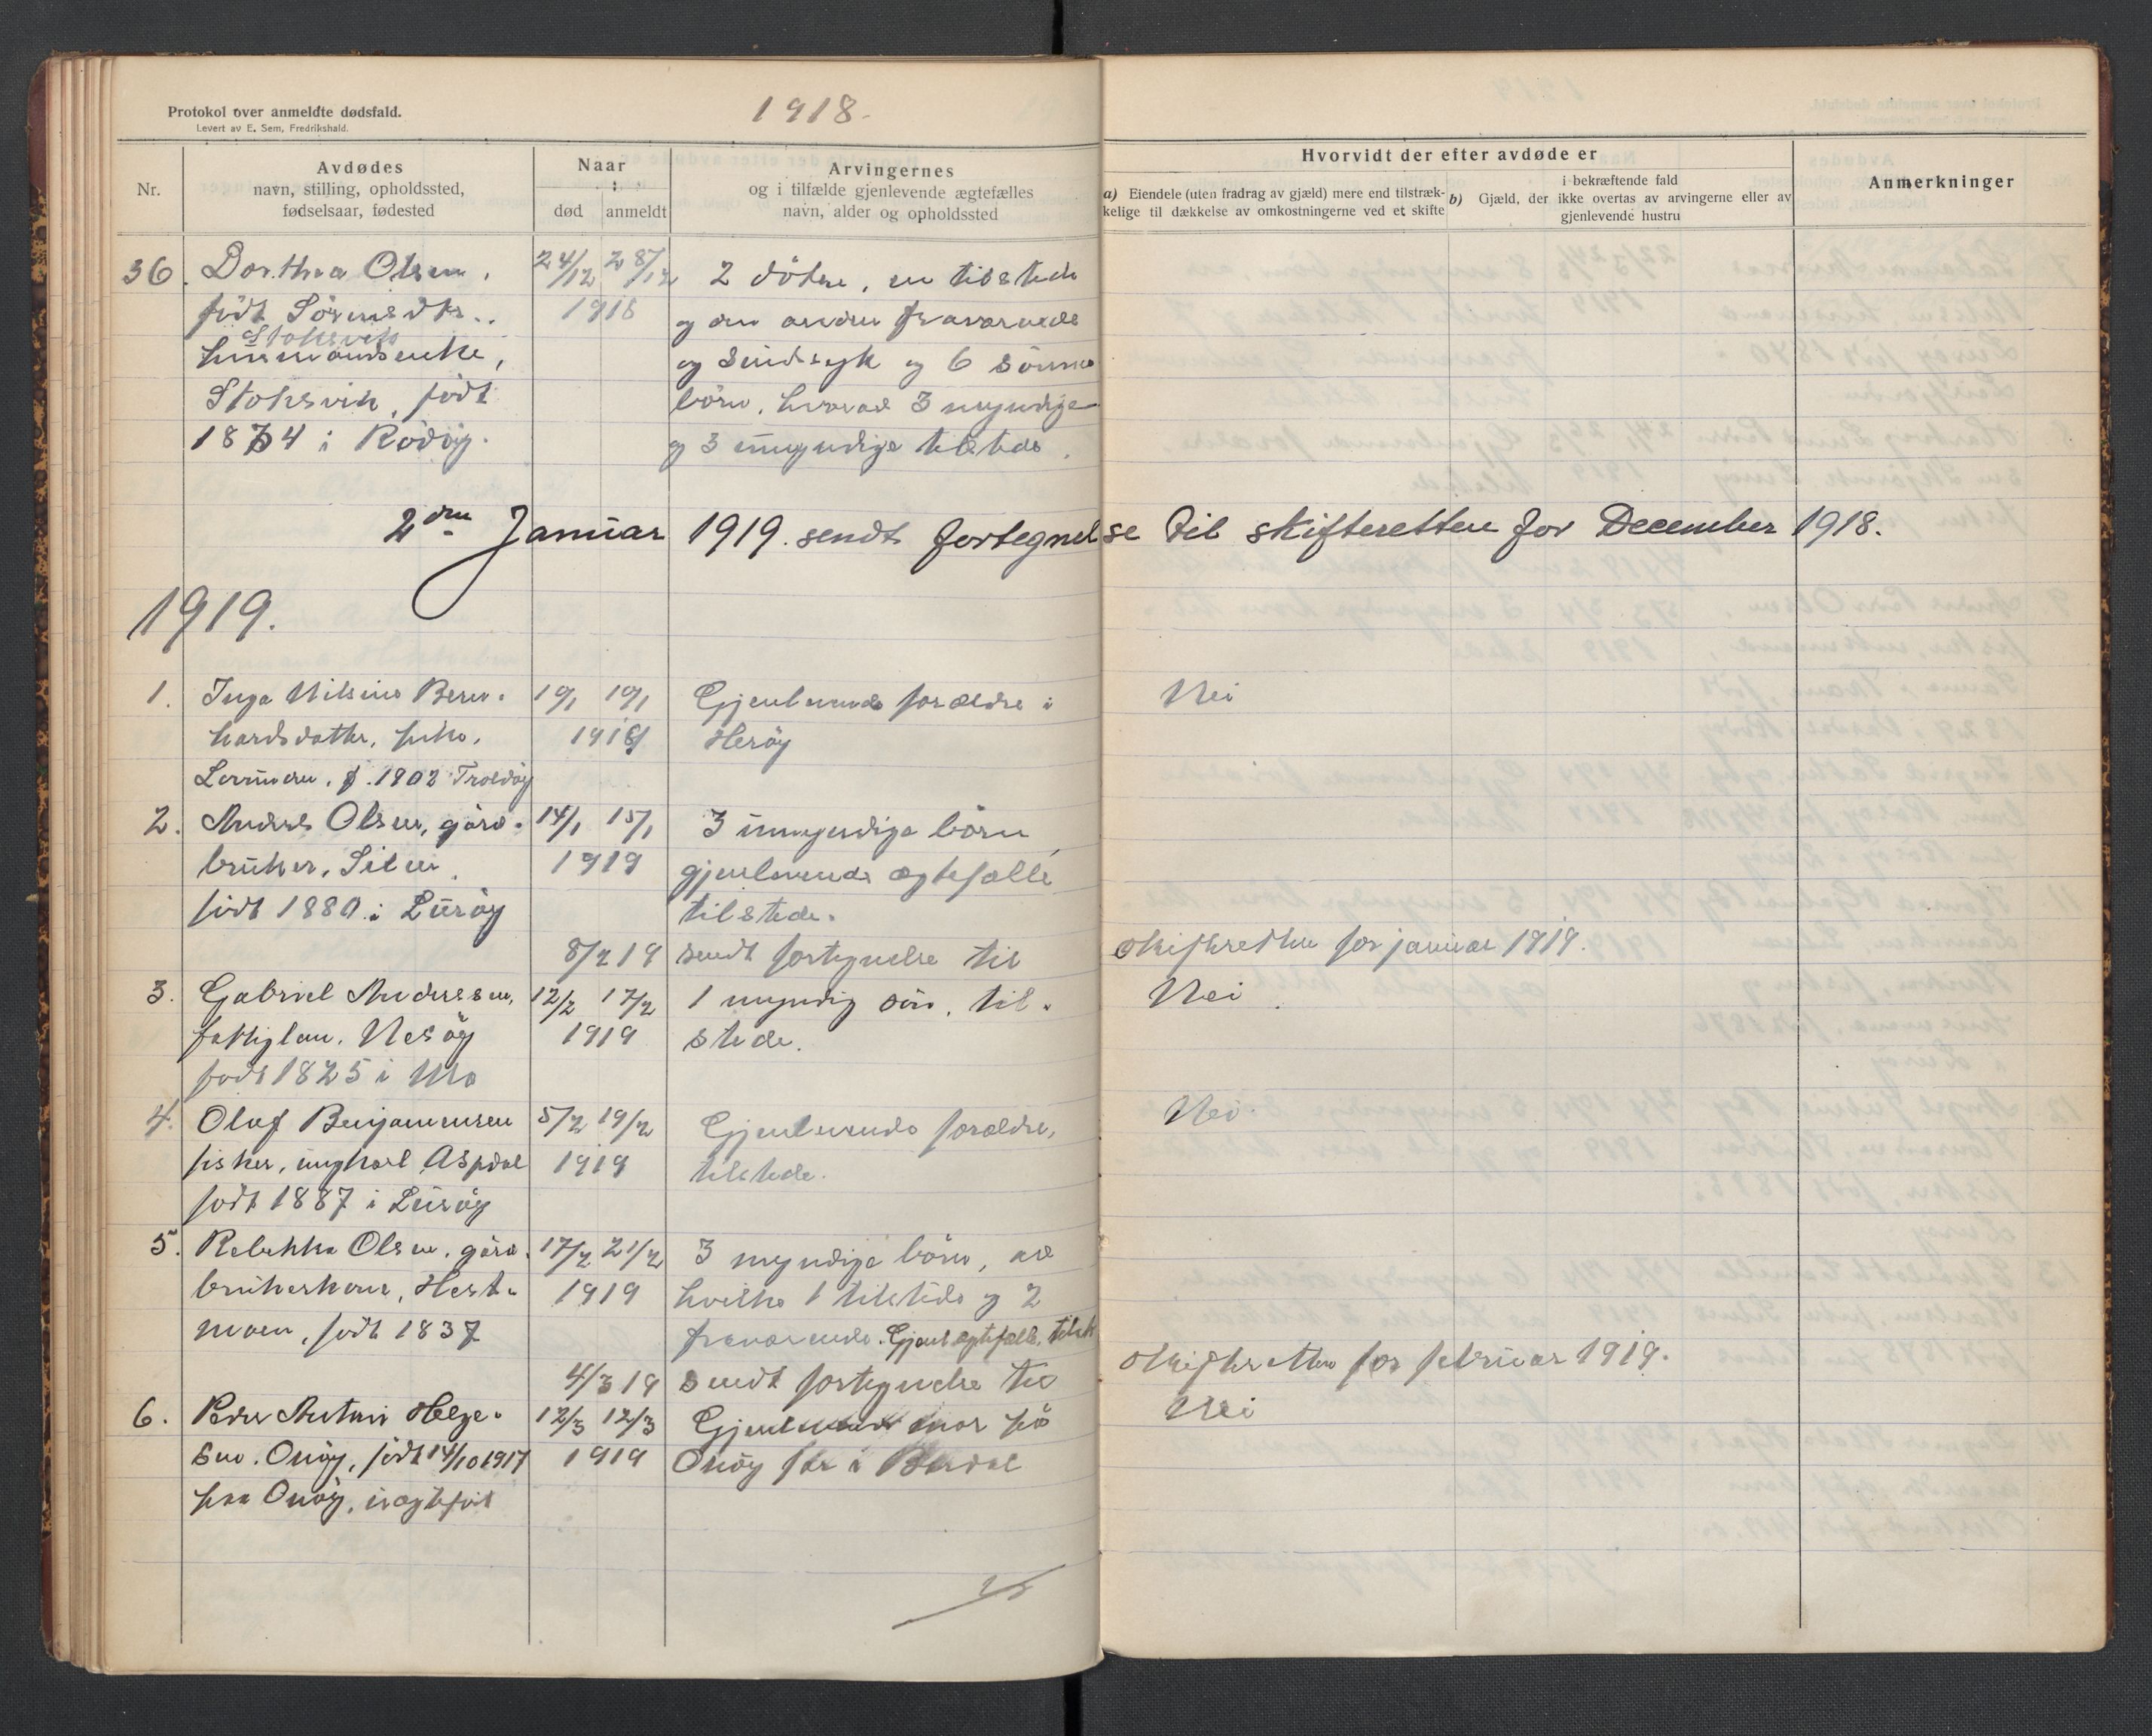 1918.
Protokol over anmeldte dødsfald.
Levert av E. Sem, Fredrikshald.
Nr.
Avdødes
navn, stilling, opholdssted,
fødselsaar, fødested
Naar
død anmeldt
Arvingernes
og i tilfælde gjenlevende ægtefælles
navn, alder og opholdssted
Hvorvidt der efter avdøde er
a) Eiendele (uten fradrag av gjæld) mere end tilstræk-
kelige til dækkelse av omkostningerne ved et skifte
i bekræftende fald
b) Gjæld, der ikke overtas av arvingerne eller av
gjenlevende hustru
Anmerkninger
36. Dorthea Olsen, 24/12 28/12 2 döttre, en tilstede
født Sörensdtr. 1918 og den anden fraværende
Stoksvik
husmandsenke, og sindssyk og 6 sönne
Stoksvik, født börn, hvorav 3 myndige
1834 i Rödöy. og 3 umyndige tilstede.
2den Januar 1919 sendt fortegnelse til skifteretten for December 1918.
1919.
1. Inga Nilsine Bern- 10/1 10/1 Gjenlevende forældre i Nei
hardsdatter, pike, 1918 Heröy
f. 1902 Troldöy
2. Anders Olsen, gård- 14/1 15/1 3 umyndige börn,
bruker, Silen, 1919 gjenlevende ægtefælle
født 1880 i Luröy tilstede.
8/2 19 sendt fortegnelse til skifteretten for januar 1919.
3. Gabriel Andersen, 12/2 17/2 1 myndig sön, til- Nei
fattiglem, Nesöy 1919 stede.
født 1825 i Mo
4. Olaf Benjaminsen 5/2 19/2 Gjenlevende forældre, Nei.
fisker, ungkarl Aspdal 1919 tilstede.
født 1887 i Luröy
5. Rebekka Olsen, gård- 17/2 21/2 3 myndige börn, av
brukerkone, Hest- 1919 hvilke 1 tilstede og 2
moen, født 1837 fraværende. Gjenl. ægtefælle, tilst
4/3 19 sendt fortegnelse til skifteretten for februar 1919.
6. Peder Antoni Helge- 12/3 12/3 Gjenlevende mor på Nei
sen. Onöy, født 14/10 1917 1919 Onöy far i
paa Onöy, uægtefødt